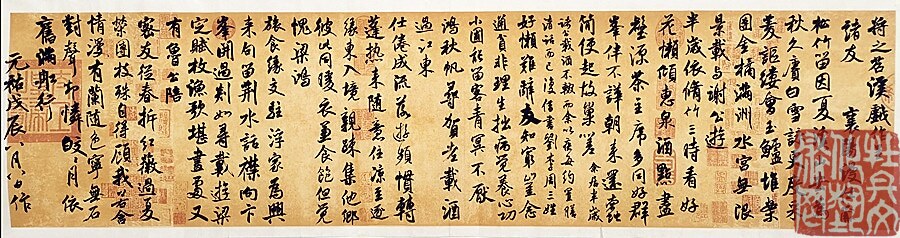 將之苕溪戲作
諸友 襄陽漫仕黻
松竹留因夏溪山去為
秋久賡白雪詠更度采
菱謳縷會玉鱸堆案
團金橘滿洲水宮無限
景載與謝公遊
半歲依脩竹三時看好
花懶傾惠泉酒點盡
壑源茶主席多同好群
峯伴不譁朝來還蠹
簡便起故巢嗟 余居半歲
諸公載酒不輟而余以疾每約置膳
清話而已復借書劉李周三姓
好懶難辭友知窮豈念
通貧非理生拙病覺養心功
小圃能留客青冥不厭
鴻秋帆尋賀老載酒
過江東
仕倦成流落遊頻慣轉
蓬熱來隨意住涼至逐
緣東入境親疎集他鄉
彼此同暖衣兼食飽但覺
愧梁鴻
旅食緣交駐浮家為興
來句留荊水話襟向卞
峯開過剡如尋戴遊梁
定賦枚漁歌堪畫處又
有魯公陪
密友從春拆紅薇過夏
榮團枝殊自得顧我若含
情漫有蘭隨色寧無石
對聲却憐皎皎月依
舊滿船行
元祐戊辰八月八日作